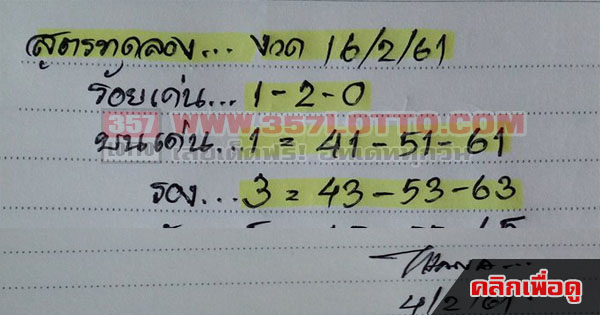 สูตรทดลอง... งวด 16/2/61
ร้อยเด่น... 1-2-0
357 WWW.357LOTTO.COM
บนเด่น.. 1 = 41-51-61
รอง... 3 = 43-53-63
4/2/61
คลิกเพื่อดู